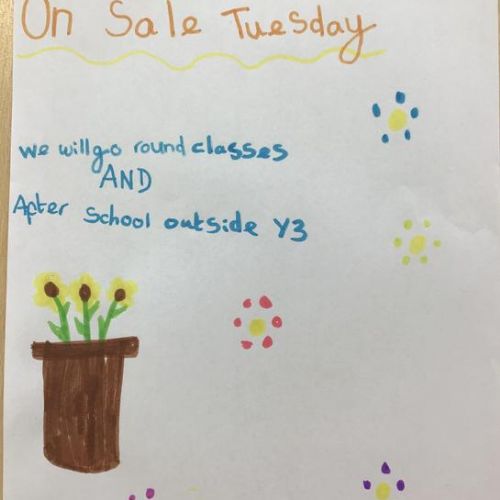 On Sale Tuesday
we will go round classes
AND
After School outside Y3